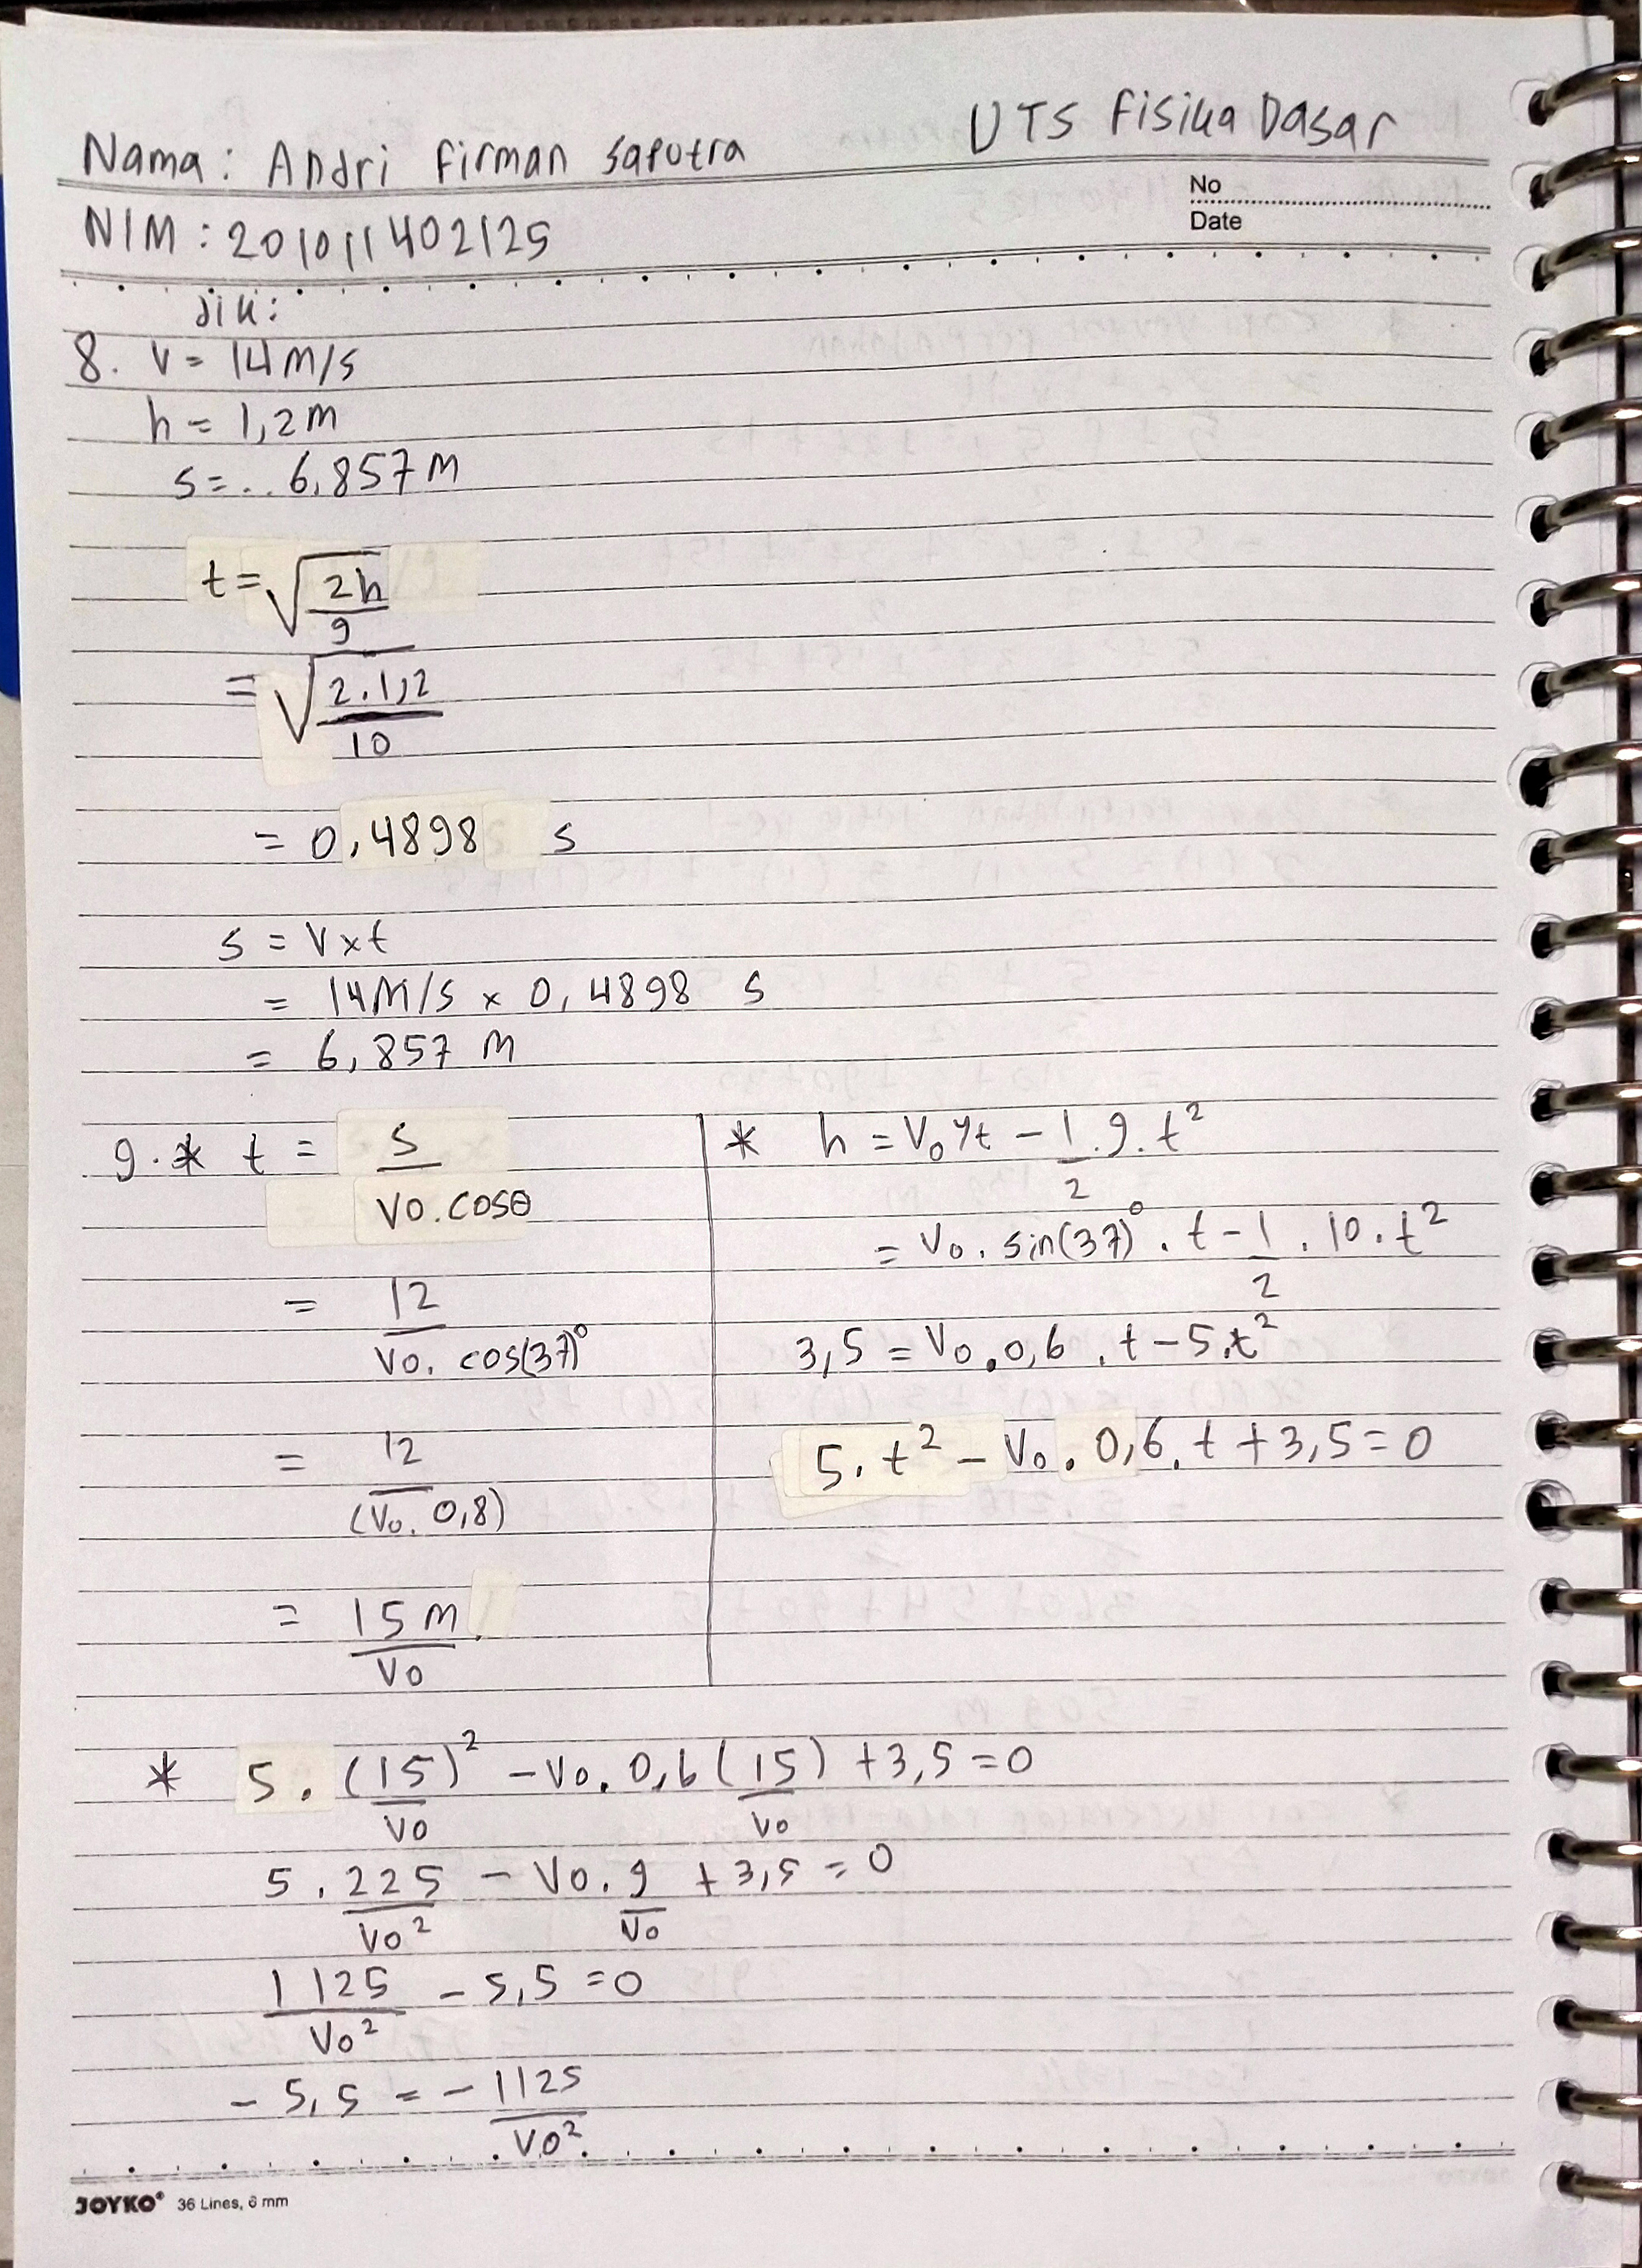 UTS Fisika Dasar
Nama: Andri Firman Saputra
No
Date
NIM: 201011402125
dik:
8. V = 14 m/s
h = 1,2 m
s = .. 6,857 m
t = √(2h/g)
= √(2.1,2/10)
= 0,4898 s
s = V x t
= 14 m/s x 0,4898 s
= 6,857 m
9. * t = s/(Vo. cosθ)
= 12/(Vo. cos(37)°)
= 12/(Vo. 0,8)
= 15 m/Vo
* h = Vo yt - 1/2 . g. t²
= Vo. sin(37)° . t - 1/2 . 10. t²
3,5 = Vo.0,6 . t - 5.t²
5. t² - Vo. 0,6. t + 3,5 = 0
* 5. (15/Vo)² - Vo. 0,6 (15/Vo) + 3,5 = 0
5 . 225/Vo² - Vo. 9/Vo + 3,5 = 0
1125/Vo² - 5,5 = 0
- 5,5 = - 1125/Vo²
JOYKO® 36 Lines, 6 mm